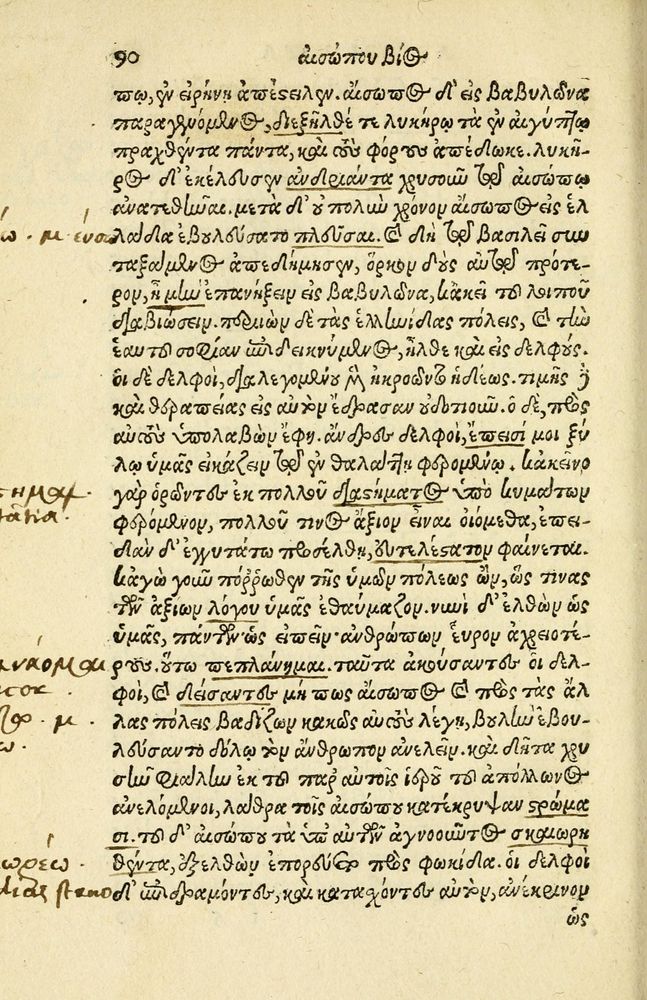 90 αἰσώπου βίος
πῳ, ἐν εἰρήνῃ ἀπέστειλεν. αἴσωπος δ' εἰς βαβυλῶνα
παραγενόμενος, διεξῆλθέ τε λυκήρῳ τὰ ἐν αἰγύπτῳ
πραχθέντα πάντα, καὶ τοὺς φόρους ἀπέδωκε. λυκῆ-
ρος δ' ἐκέλευσεν ἀνδριάντα χρυσοῦν τῷ αἰσώπῳ
ἀνατεθῆναι. μετὰ δ' οὐ πολὺν χρόνον αἴσωπος εἰς ἑλ
λάδα ἐβουλεύσατο πλεῦσαι. καὶ δὴ τῷ βασιλεῖ συν
ταξάμενος ἀπεδήμησεν, ὅρκον δοὺς αὐτῷ πρότε-
ρον, ἦ μὴν ἐπανήξειν εἰς βαβυλῶνα, κἀκεῖ τοῦ λοιποῦ
διαβιώσειν. περιιὼν δὲ τὰς ἑλληνίδας πόλεις, καὶ τὴν
ἑαυτοῦ σοφίαν ἐπιδεικνύμενος, ἦλθε καὶ εἰς δελφούς.
οἱ δὲ δελφοὶ, διαλεγομένου μὲν ἠκροῶντο ἡδέως. τιμῆς δὲ
καὶ θεραπείας εἰς αὐτὸν ἔδρασαν οὐδοτιοῦν. ὁ δὲ, πρὸς
αὐτοὺς ὑπολαβὼν ἔφη. ἄνδρες δελφοὶ, ἔπεισί μοι ξύ
λῳ ὑμᾶς εἰκάζειν τῷ ἐν θαλάττῃ φερομένῳ. κἀκεῖνο
γὰρ ὁρῶντες ἐκ πολλοῦ διαστήματος ὑπὸ κυμάτων
φερόμενον, πολλοῦ τινος ἄξιον εἶναι οἰόμεθα, ἐπει-
δὰν δ' ἐγγυτάτω προσέλθῃ, εὐτελέστατον φαίνεται.
κἀγὼ γοῦν πόῤῥωθεν τῆς ὑμῶν πόλεως ὢν, ὥς τινας
τῶν ἀξίων λόγου ὑμᾶς ἐθαύμαζον. νυνὶ δ' ἐλθὼν ὡς
ὑμᾶς, πάντων ὡς εἰπεῖν ἀνθρώπων εὗρον ἀχρειοτέ-
ρους. οὕτω πεπλάνημαι. ταῦτα ἀκούσαντες οἱ δελ-
φοὶ, καὶ δείσαντες μή πως αἴσωπος καὶ πρὸς τὰς ἄλ
λας πόλεις βαδίζων κακῶς αὐτοὺς λέγῃ, βουλὴν ἐβου-
λεύσαντο δόλῳ τὸν ἄνθρωπον ἀνελεῖν. καὶ δῆτα χρυ
σῆν φιάλην ἐκ τοῦ παρ' αὐτοῖς ἱεροῦ τοῦ ἀπόλλωνος
ἀνελόμενοι, λάθρα τοῖς αἰσώπου κατέκρυψαν στρώμα
σι. τοῦ δ' αἰσώπου τὰ ὑπ' αὐτῶν ἀγνοοῦντος σκαιωρη
θέντα, ἐξελθὼν ἐπορεύετο πρὸς φωκίδα. οἱ δελφοὶ
δ' ἐπιδραμόντες, καὶ κατασχόντες αὐτὸν, ἀνέκρινον
ὡς